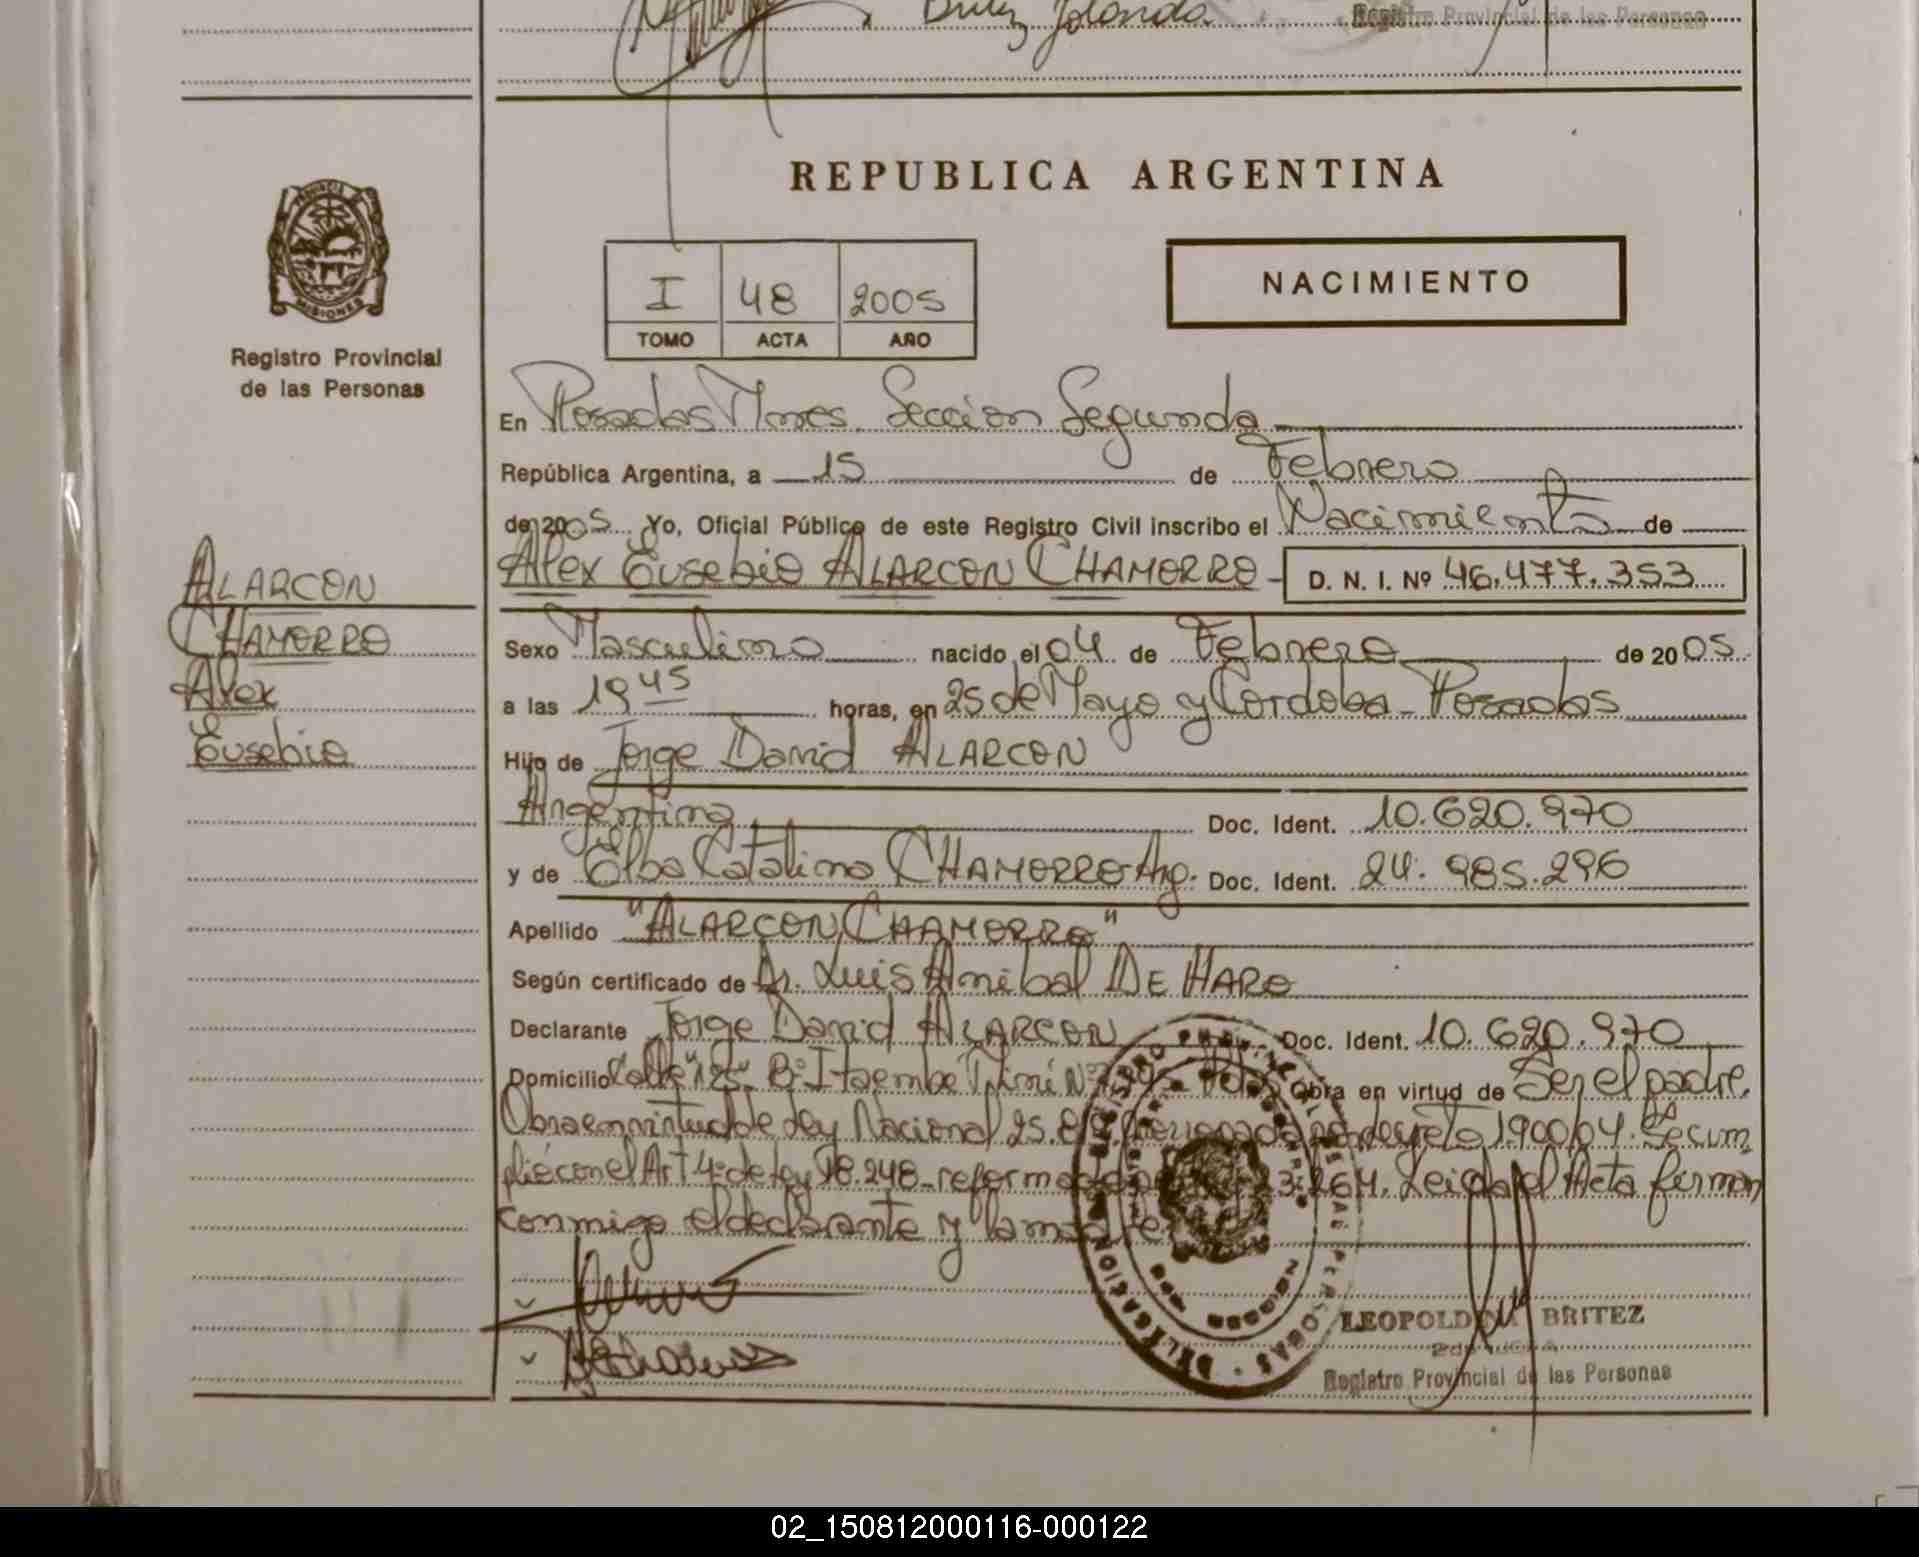 Britez Yolanda
Registro Provincial de las Personas
REPUBLICA ARGENTINA
PROVINCIA DE
MISIONES
I 48 2005
TOMO ACTA AÑO
NACIMIENTO
Registro Provincial
de las Personas
En Posadas Mnes. Sección Segunda
República Argentina, a 15 de Febrero
de 2005 Yo, Oficial Público de este Registro Civil inscribo el Nacimiento de
Alex Eusebio ALARCON CHAMORRO D. N. I. Nº 46.477.353
ALARCON
CHAMORRO
Alex
Eusebio
Sexo Masculino nacido el 04 de Febrero de 2005
a las 19 45 horas, en 25 de Mayo y Cordoba - Posadas
Hijo de Jorge David ALARCON
Argentina Doc. Ident. 10.620.970
y de Elba Catalina CHAMORRO Arg. Doc. Ident. 24.985.296
Apellido "ALARCON CHAMORRO"
Según certificado de Dr. Luis Anibal DE HARO
Declarante Jorge David ALARCON Doc. Ident. 10.620.970
Domicilio Calle "125" Bº Itaembe Miní Nº Obra en virtud de Ser el padre.
Obra en virtud de Ley Nacional 25. decreto 1900/04. Se cum
plió con el Art 4º de Ley 18.248 reformada 3.264. Leida el Acta firman
conmigo el declarante y la madre
LEOPOLDINA BRITEZ
Registro Provincial de las Personas
02_150812000116-000122